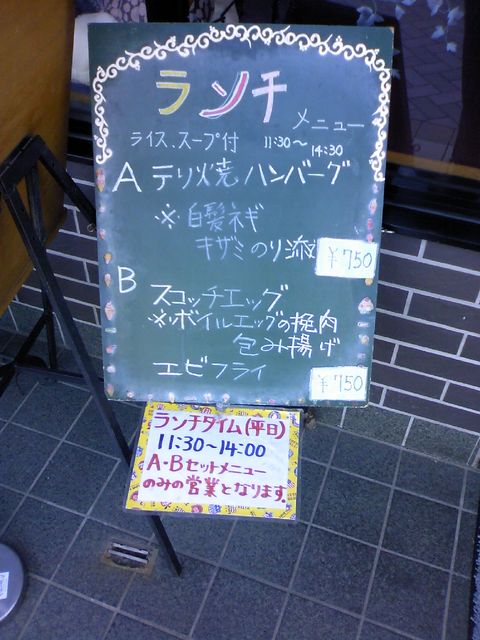 ランチ
メニュー
ライス、スープ付 11:30〜14:30
A テリ火焼ハンバーグ
※白髪ネギ
キザミのり添
¥750
B
スコッチエッグ
※ボイルエッグの挽肉
包み揚げ
エビフライ
¥750
ランチタイム(平日)
11:30〜14:00
A・Bセットメニュー
のみの営業となります。